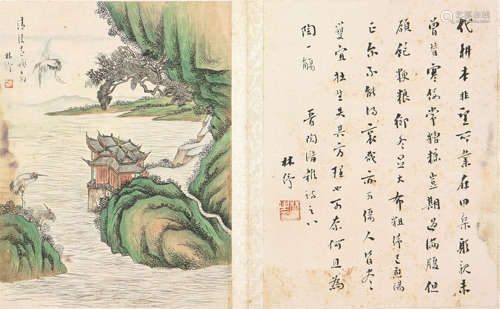 代耕本非望所業在田桑躬親未
曾替寒餒常糟糠豈期過滿腹但
願飽粳糧御冬足大布粗絺已應陽
正爾不能得哀哉亦可傷人皆盡
獲宜拙生失其方理也可奈何且為
陶一觴 晉陶潛雜詩之八
林紓
林紓